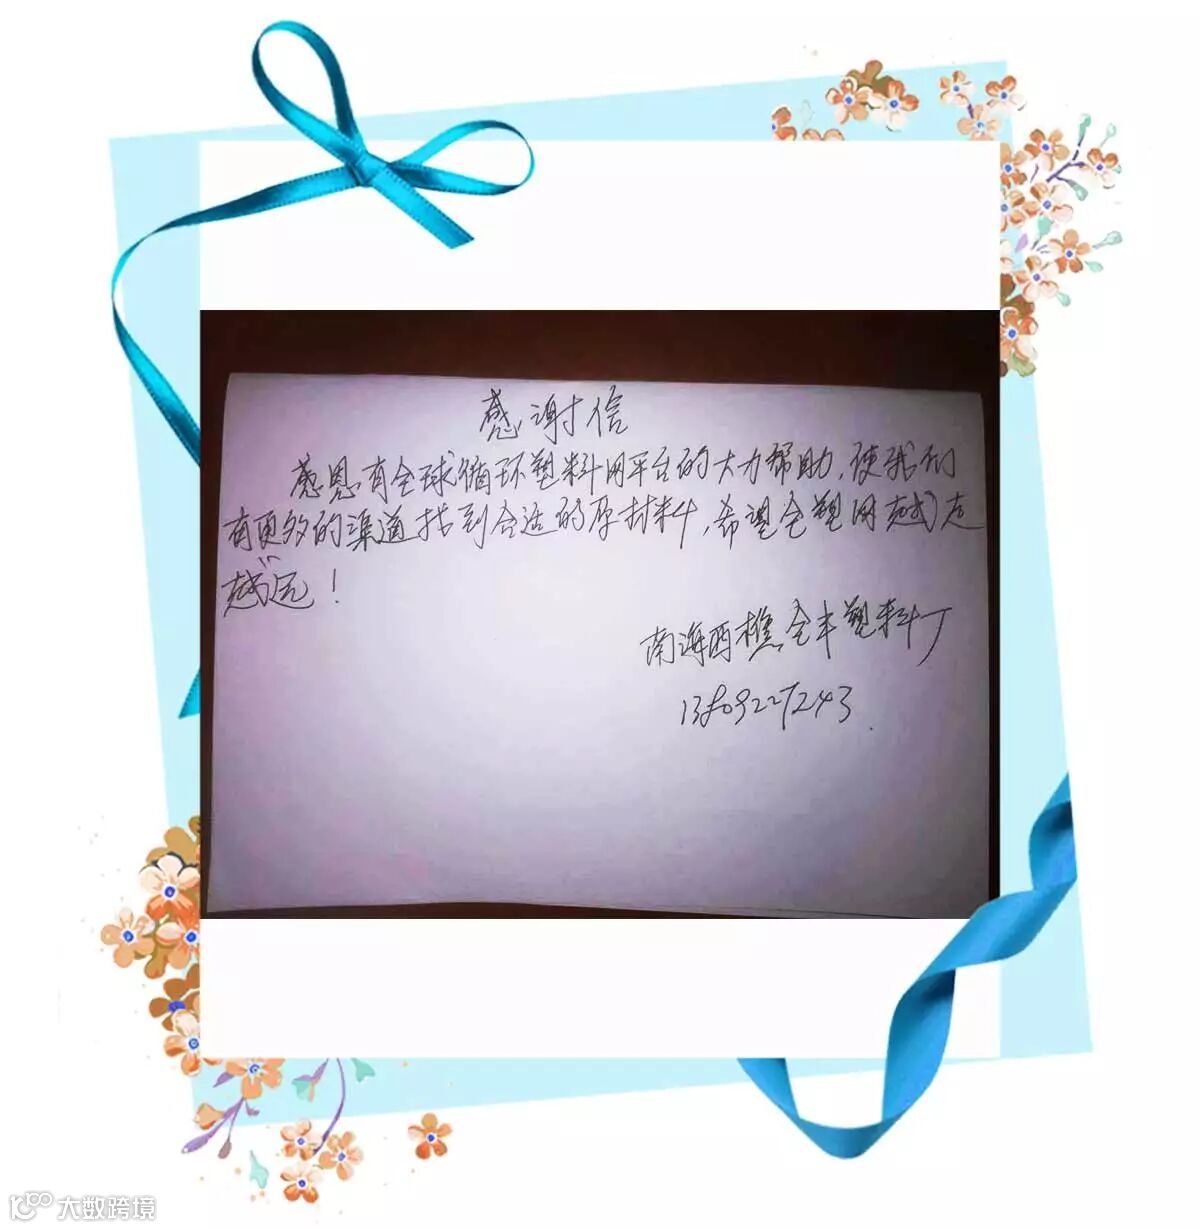 感谢信
感恩有全球循环塑料网平台的大力帮助,使我们
有更多的渠道找到合适的原材料,希望全塑网越走
越远!
南海西樵全丰塑料厂
13809227243
大数跨境